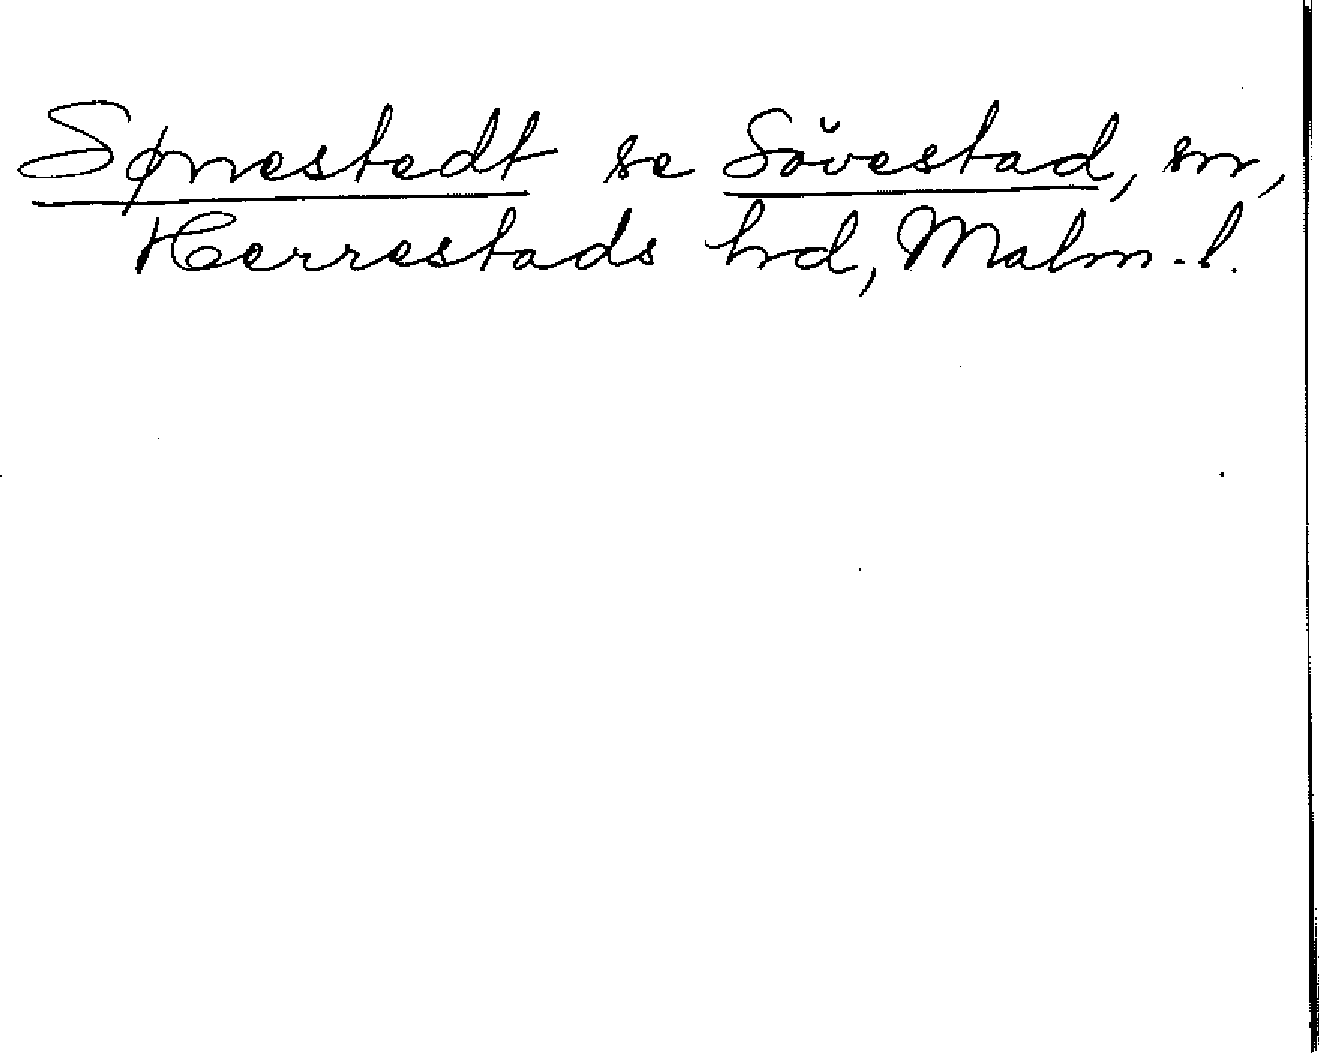 Sønestedt se Sövestad, sn,
Herrestads hd, Malm. l.